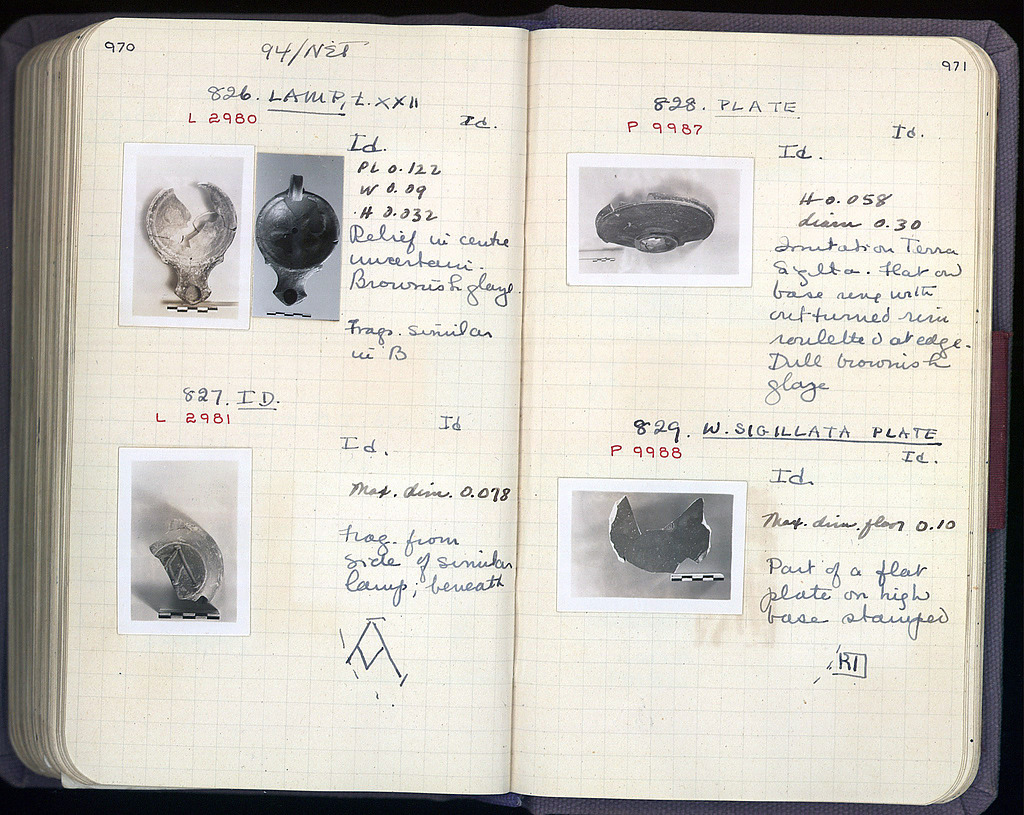 970
94/ΝΣΤ
826. LAMP, t. XXII
L 2980
Id.
Id.
PL 0.122
W 0.09
H 0.032
Relief in centre
uncertain.
Brownish glaze.
Frags. similar
in B
827. ID.
L 2981
Id
Id.
Max. dim. 0.078
Frag. from
side of similar
lamp; beneath
971
828. PLATE
P 9987
Id.
Id.
H 0.058
diam 0.30
Imitation Terra
Sigillata. flat on
base ring with
out turned rim
rouletted at edge.
Dull brownish
glaze
829. W. SIGILLATA PLATE
P 9988
Id.
Id.
Max. dim. floor 0.10
Part of a flat
plate on high
base stamped
RI